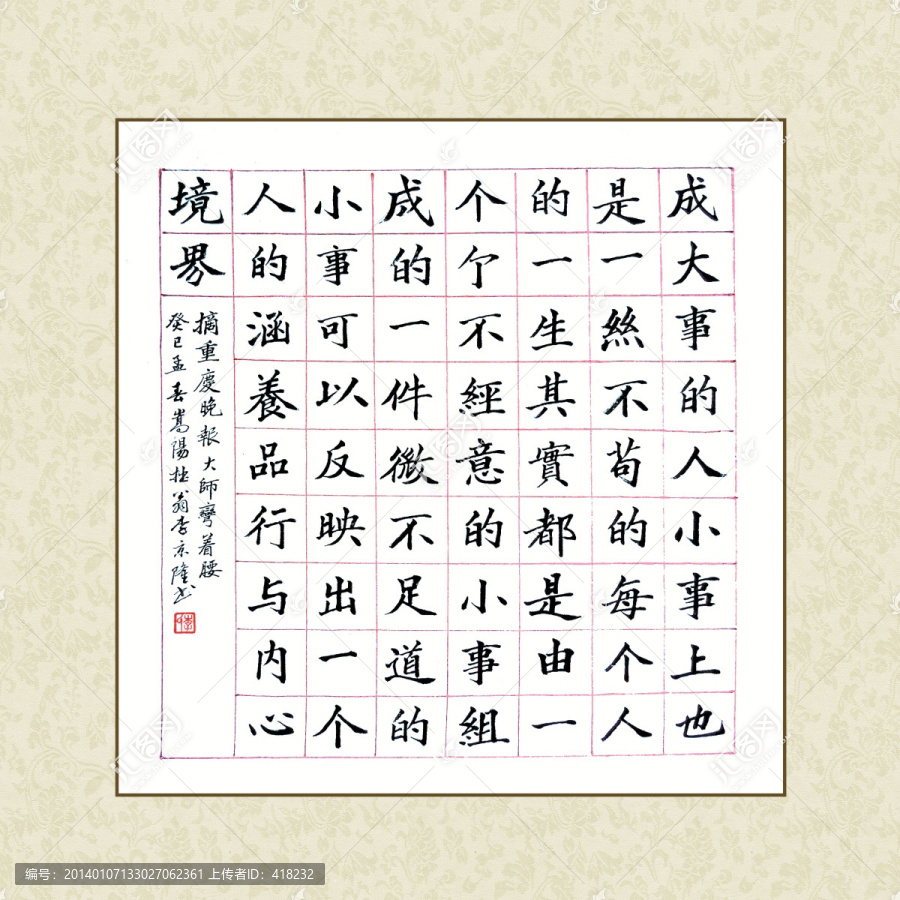 成大事的人小事上也
是一絲不苟的每个人
的一生其實都是由一
个亇不經意的小事組
成的一件微不足道的
小事可以反映出一个
人的涵養品行与内心
境界
摘重慶晚報大師彎着腰
癸巳孟春嵩陽拙翁李京隆书
编号：20140107133027062361 上传者ID：418232